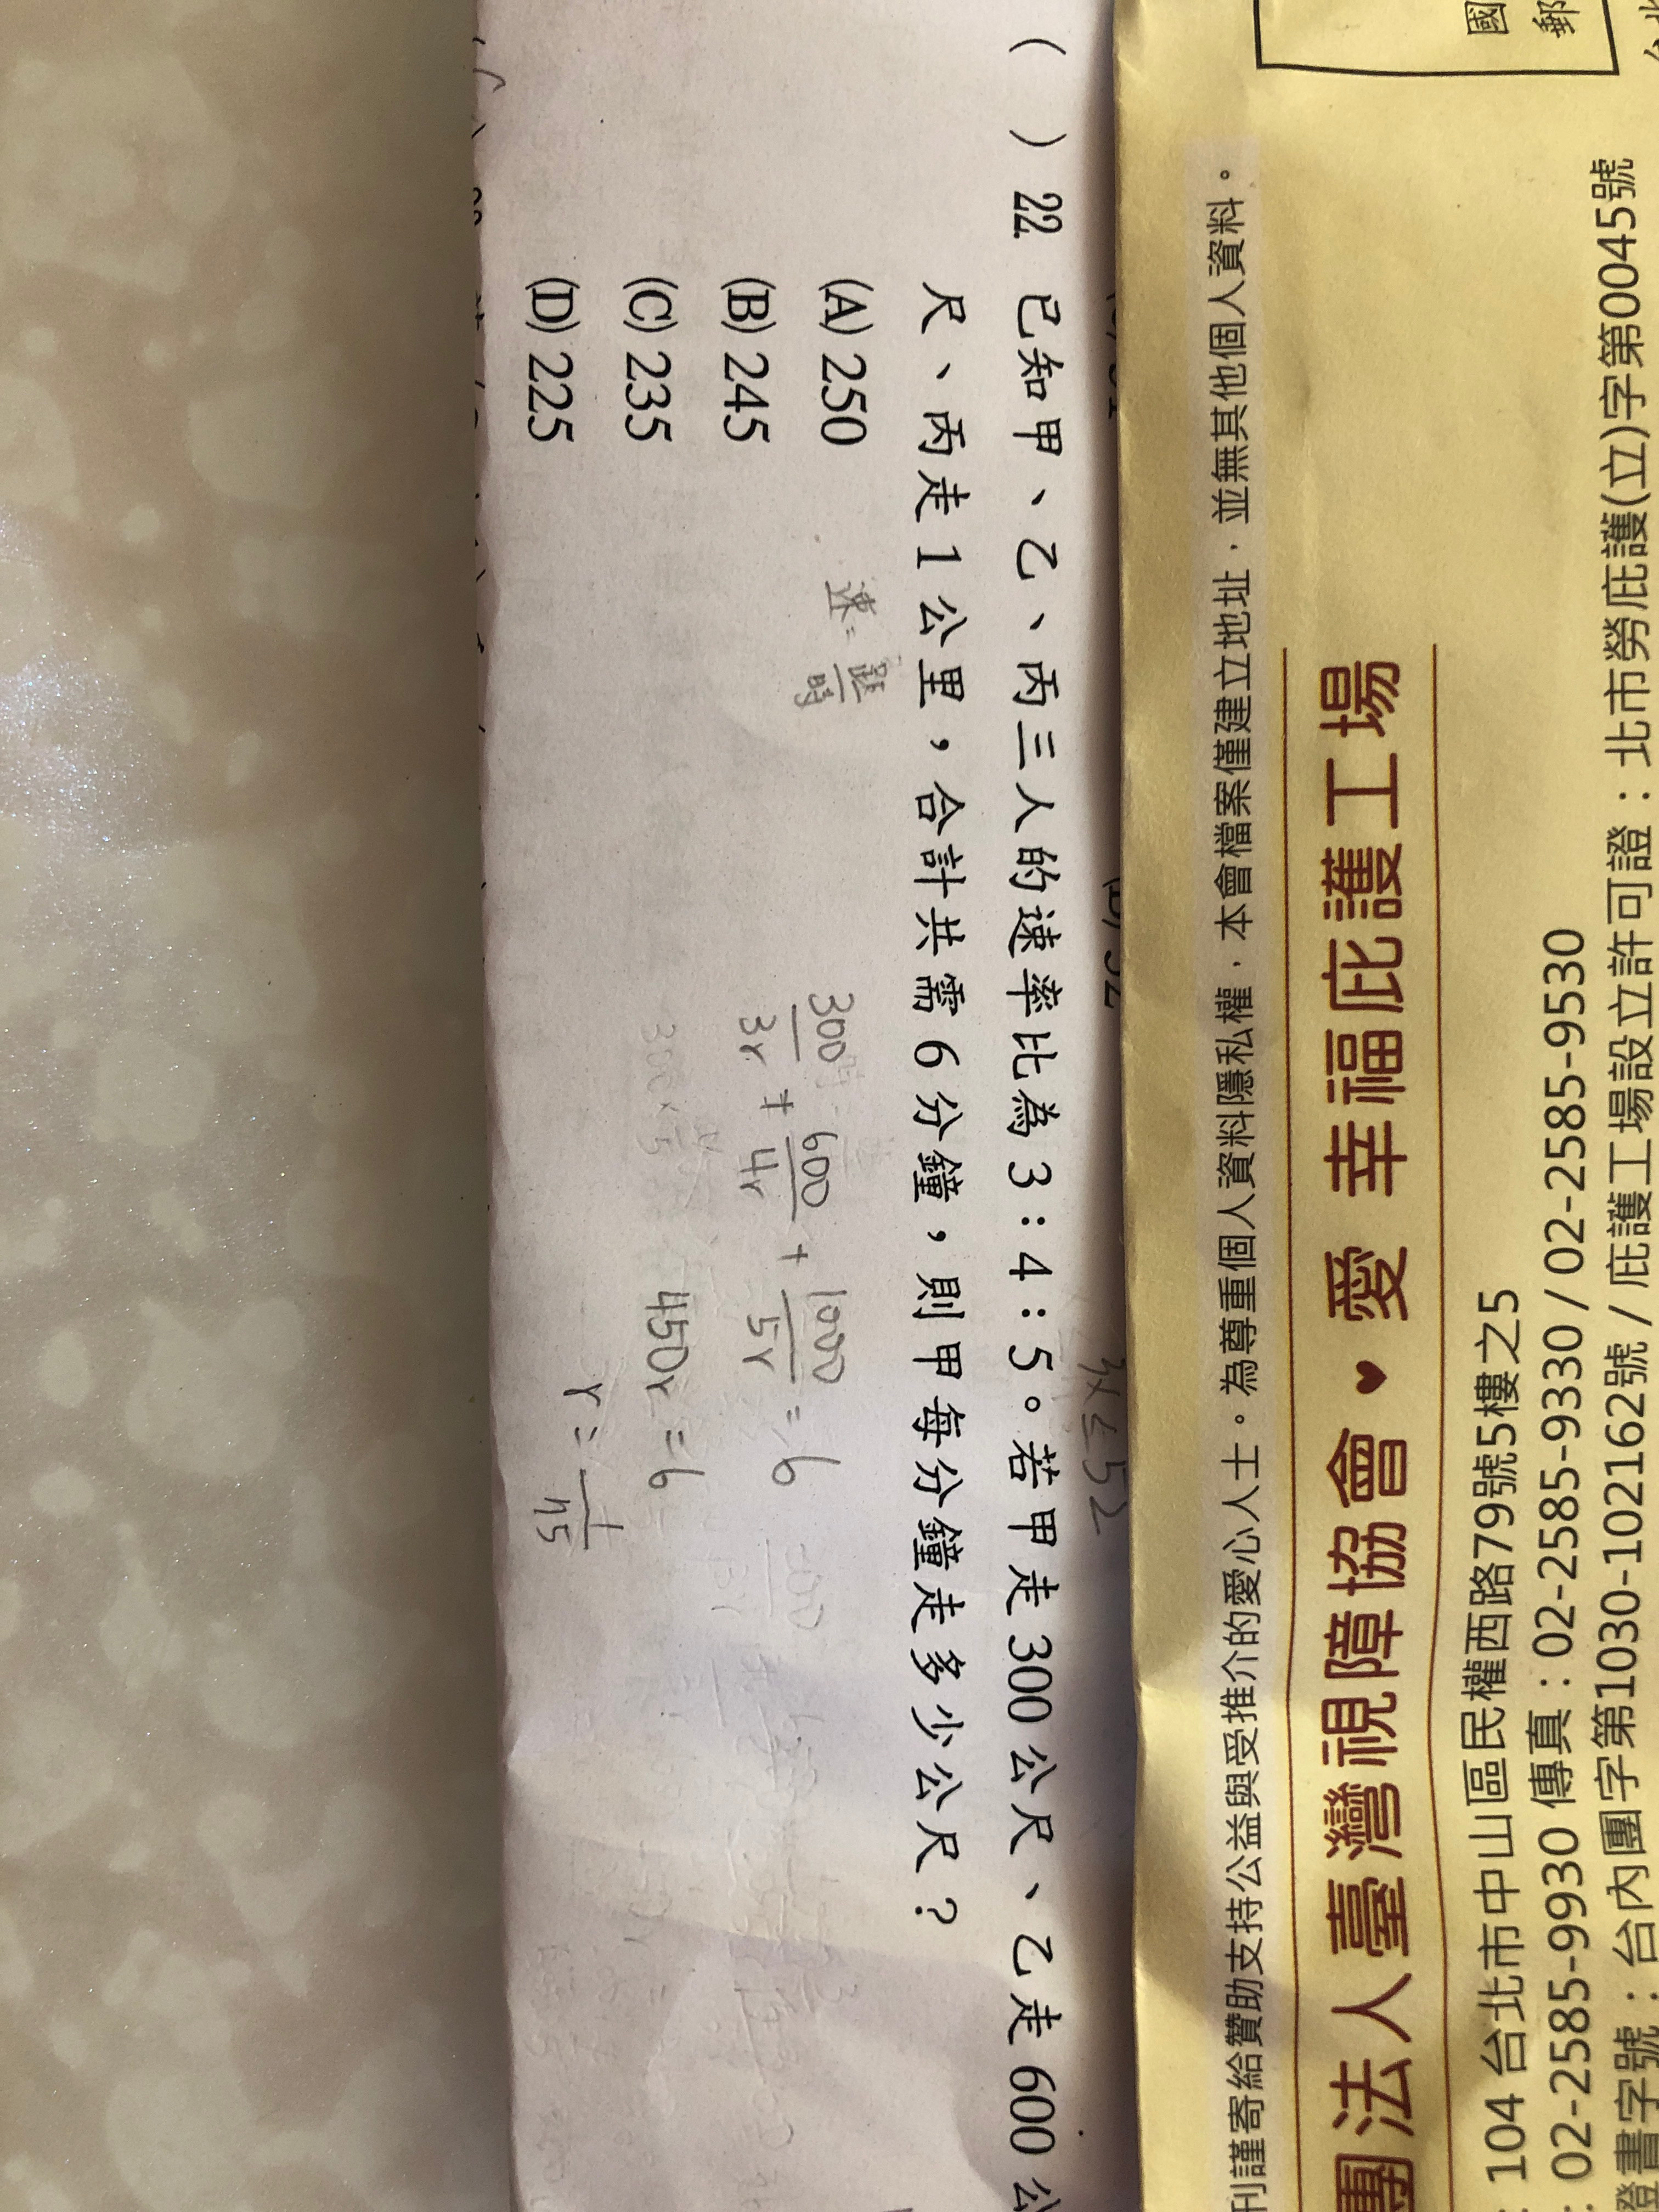 ( ) 22. 已知甲、乙、丙三人的速率比為 3:4:5。若甲走 300 公尺、乙走 600 公
尺、丙走 1 公里，合計共需 6 分鐘，則甲每分鐘走多少公尺？
(A) 250
(B) 245
(C) 235
(D) 225
速=距/時
300/3r + 600/4r + 1000/5r = 6
450r=6
r=1/75
3x≤52
國
郵
刊謹寄給贊助支持公益與受推介的愛心人士。為尊重個人資料隱私權，本會檔案僅建立地址，並無其他個人資料。
團法人臺灣視障協會♥愛 幸福庇護工場
：104 台北市中山區民權西路79號5樓之5
：02-2585-9930 傳真：02-2585-9330 / 02-2585-9530
證書字號：台內團字第1030-102162號 / 庇護工場設立許可證：北市勞庇護(立)字第0045號